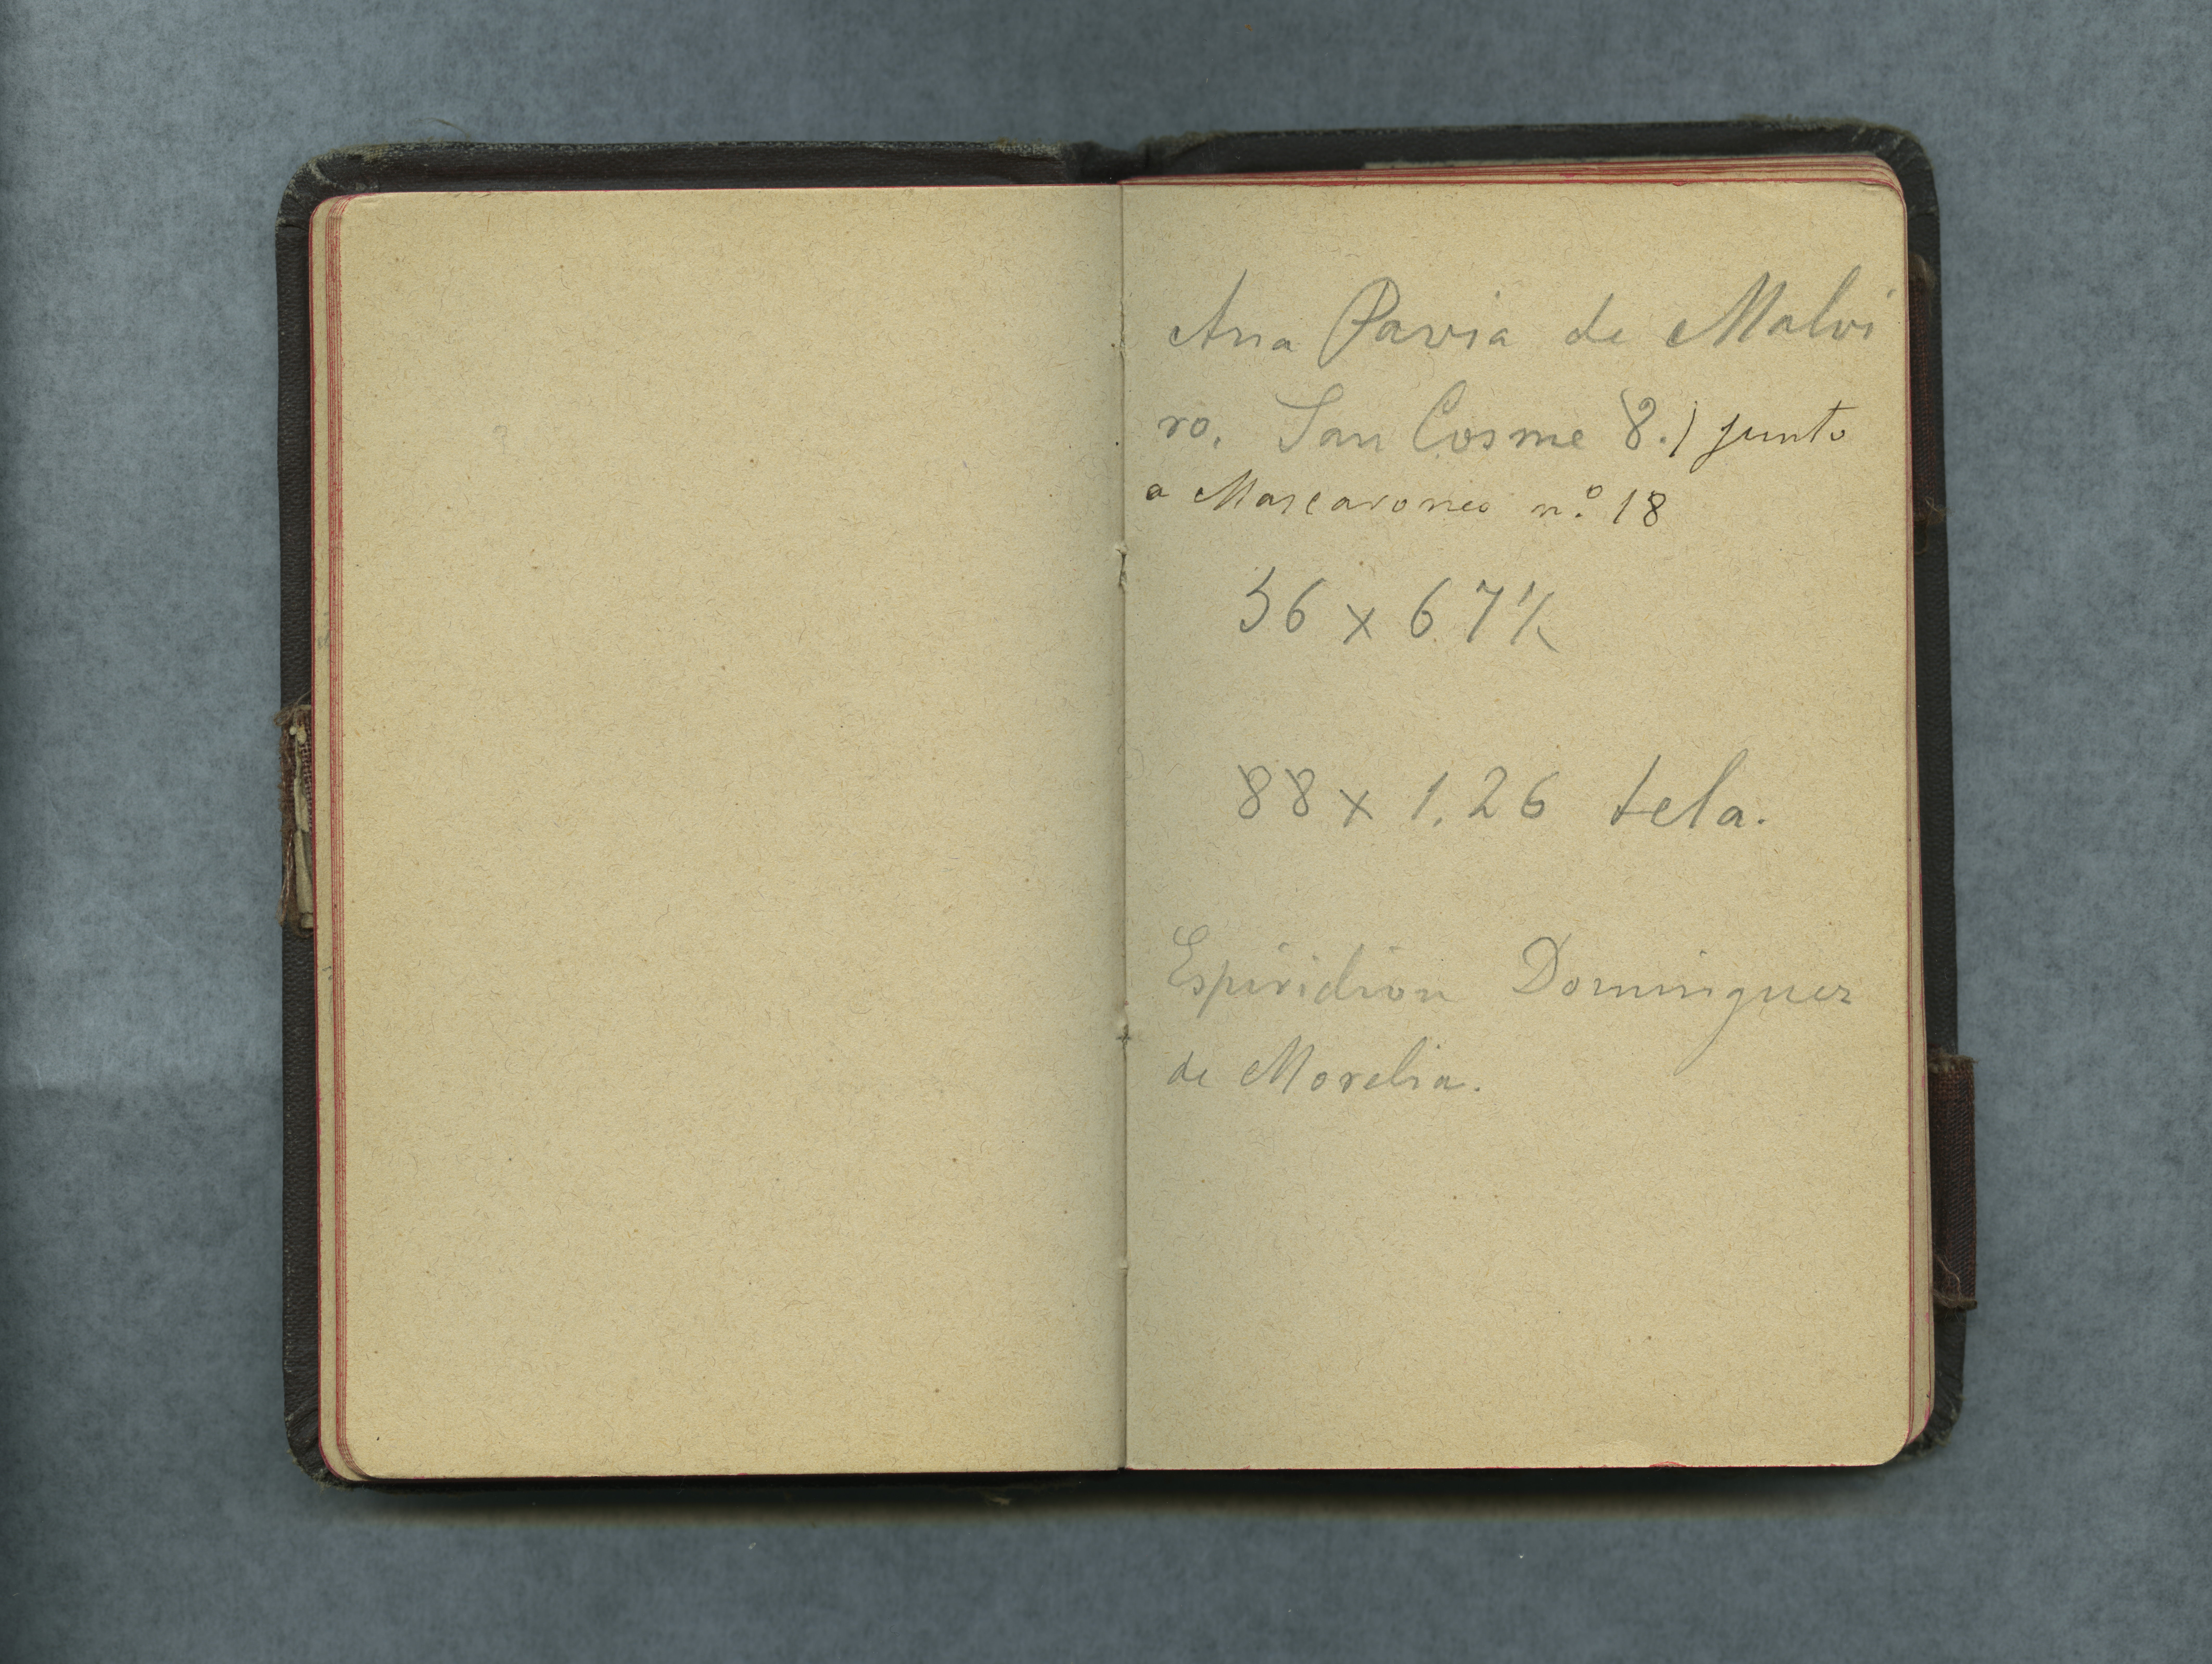 Ana Pavia de Malvi
ro. San Cosme 8.) junto
a Mascarones n.º 18
56 x 67 ½
88 x 1.26 tela.
Espiridion Dominguez
de Morelia.